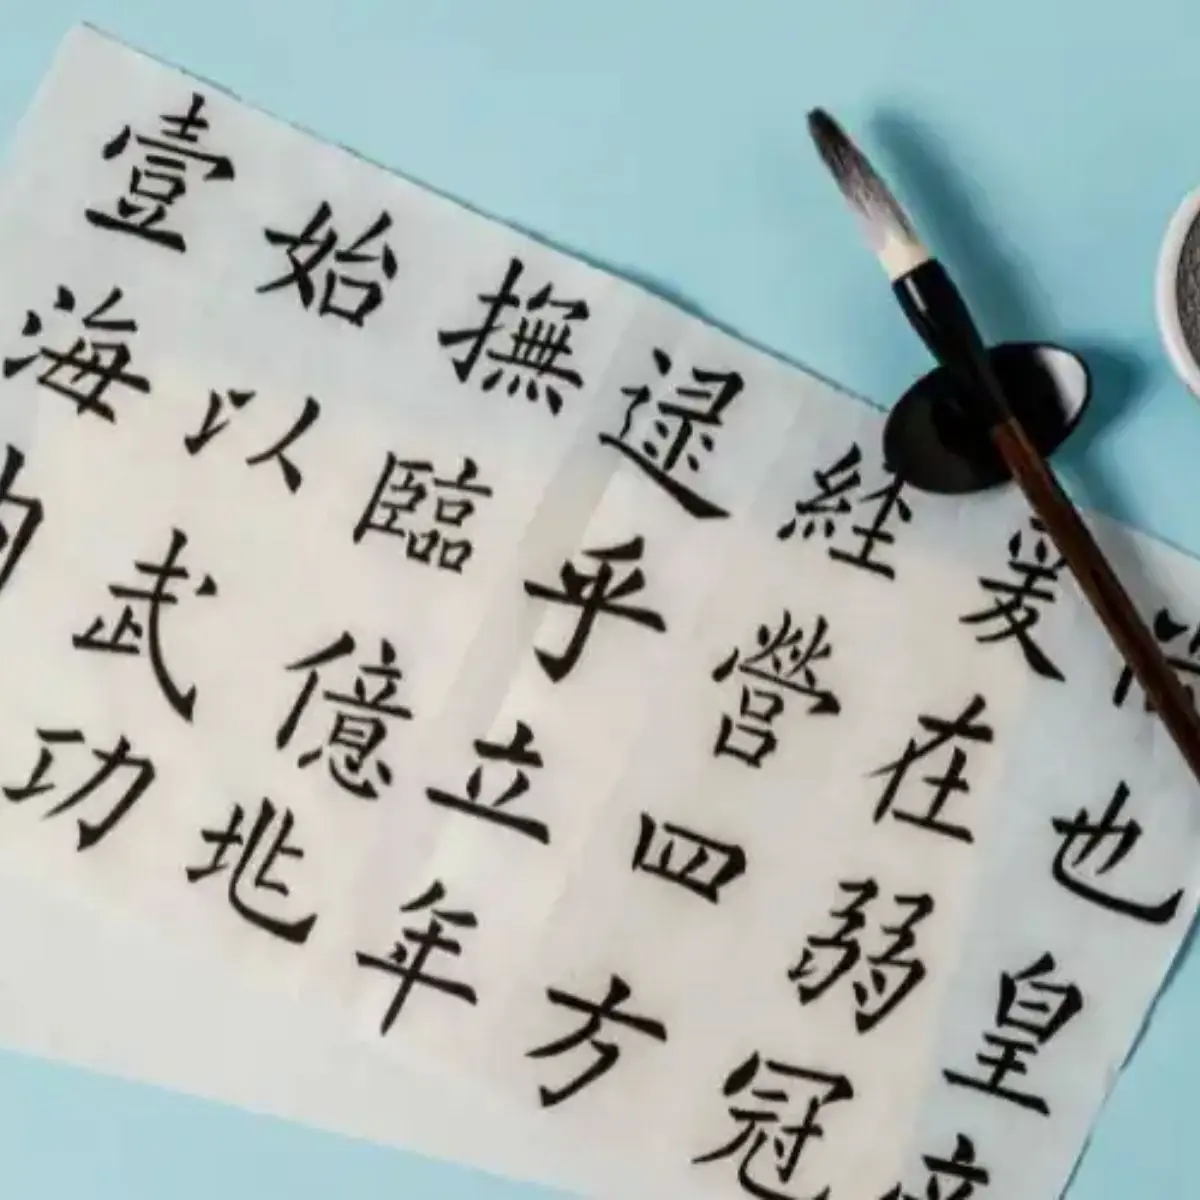 也皇
爰在弱冠
經營四方
逮乎立年
撫臨億兆
始以武功
壹海内